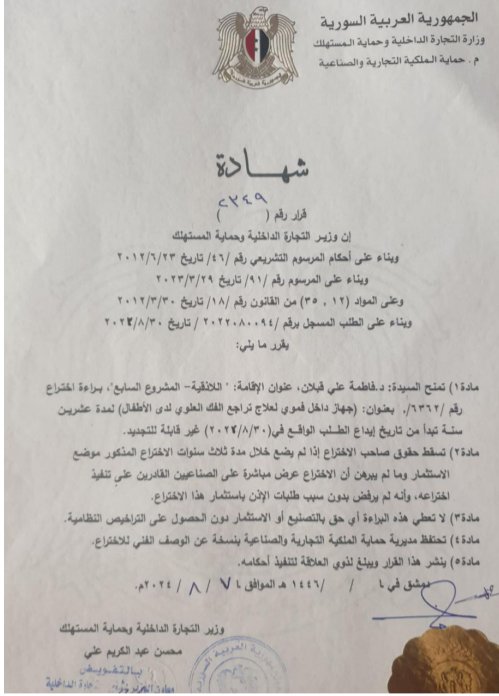 الجمهورية العربية السورية
وزارة التجارة الداخلية وحماية المستهلك
م . حماية الملكية التجارية والصناعية
شهادة
قرار رقم ( ٢٣٤٩ )
إن وزير التجارة الداخلية وحماية المستهلك
وبناء على أحكام المرسوم التشريعي رقم /٤٦/ تاريخ ٢٠١٢/٦/٢٣
وبناء على المرسوم رقم /٩١/ تاريخ ٢٠٢٣/٣/٢٩
وعلى المواد (١٢ ، ٣٥) من القانون رقم /١٨/ تاريخ ٢٠١٢/٣/٣٠
وبناء على الطلب المسجل برقم /٢٠٢٢٠٨٠٠٩٤/ تاريخ ٢٠٢٢/٨/٣٠
يقرر ما يلي:
مادة١) تمنح السيدة: د.فاطمة علي قبلان، عنوان الإقامة: "اللاذقية- المشروع السابع"، براءة اختراع
رقم /٦٣٦٢/. بعنوان: (جهاز داخل فموي لعلاج تراجع الفك العلوي لدى الأطفال) لمدة عشرين
سنة تبدأ من تاريخ إيداع الطلب الواقع في(٢٠٢٢/٨/٣٠) غير قابلة للتجديد.
مادة٢) تسقط حقوق صاحب الاختراع إذا لم يضع خلال مدة ثلاث سنوات الاختراع المذكور موضع
الاستثمار وما لم يبرهن أن الاختراع عرض مباشرة على الصناعيين القادرين على تنفيذ
اختراعه، وأنه لم يرفض بدون سبب طلبات الإذن باستثمار هذا الاختراع.
مادة٣) لا تعطي هذه البراءة أي حق بالتصنيع أو الاستثمار دون الحصول على التراخيص النظامية.
مادة٤) تحتفظ مديرية حماية الملكية التجارية والصناعية بنسخة عن الوصف الفني للاختراع.
مادة٥) ينشر هذا القرار ويبلغ لذوي العلاقة لتنفيذ أحكامه.
دمشق في ١ / / ١٤٤٦ هـ الموافق ١ ٧ / ٨ / ٢٠٢٤م.
وزير التجارة الداخلية وحماية المستهلك
محسن عبد الكريم علي
بالتفويض